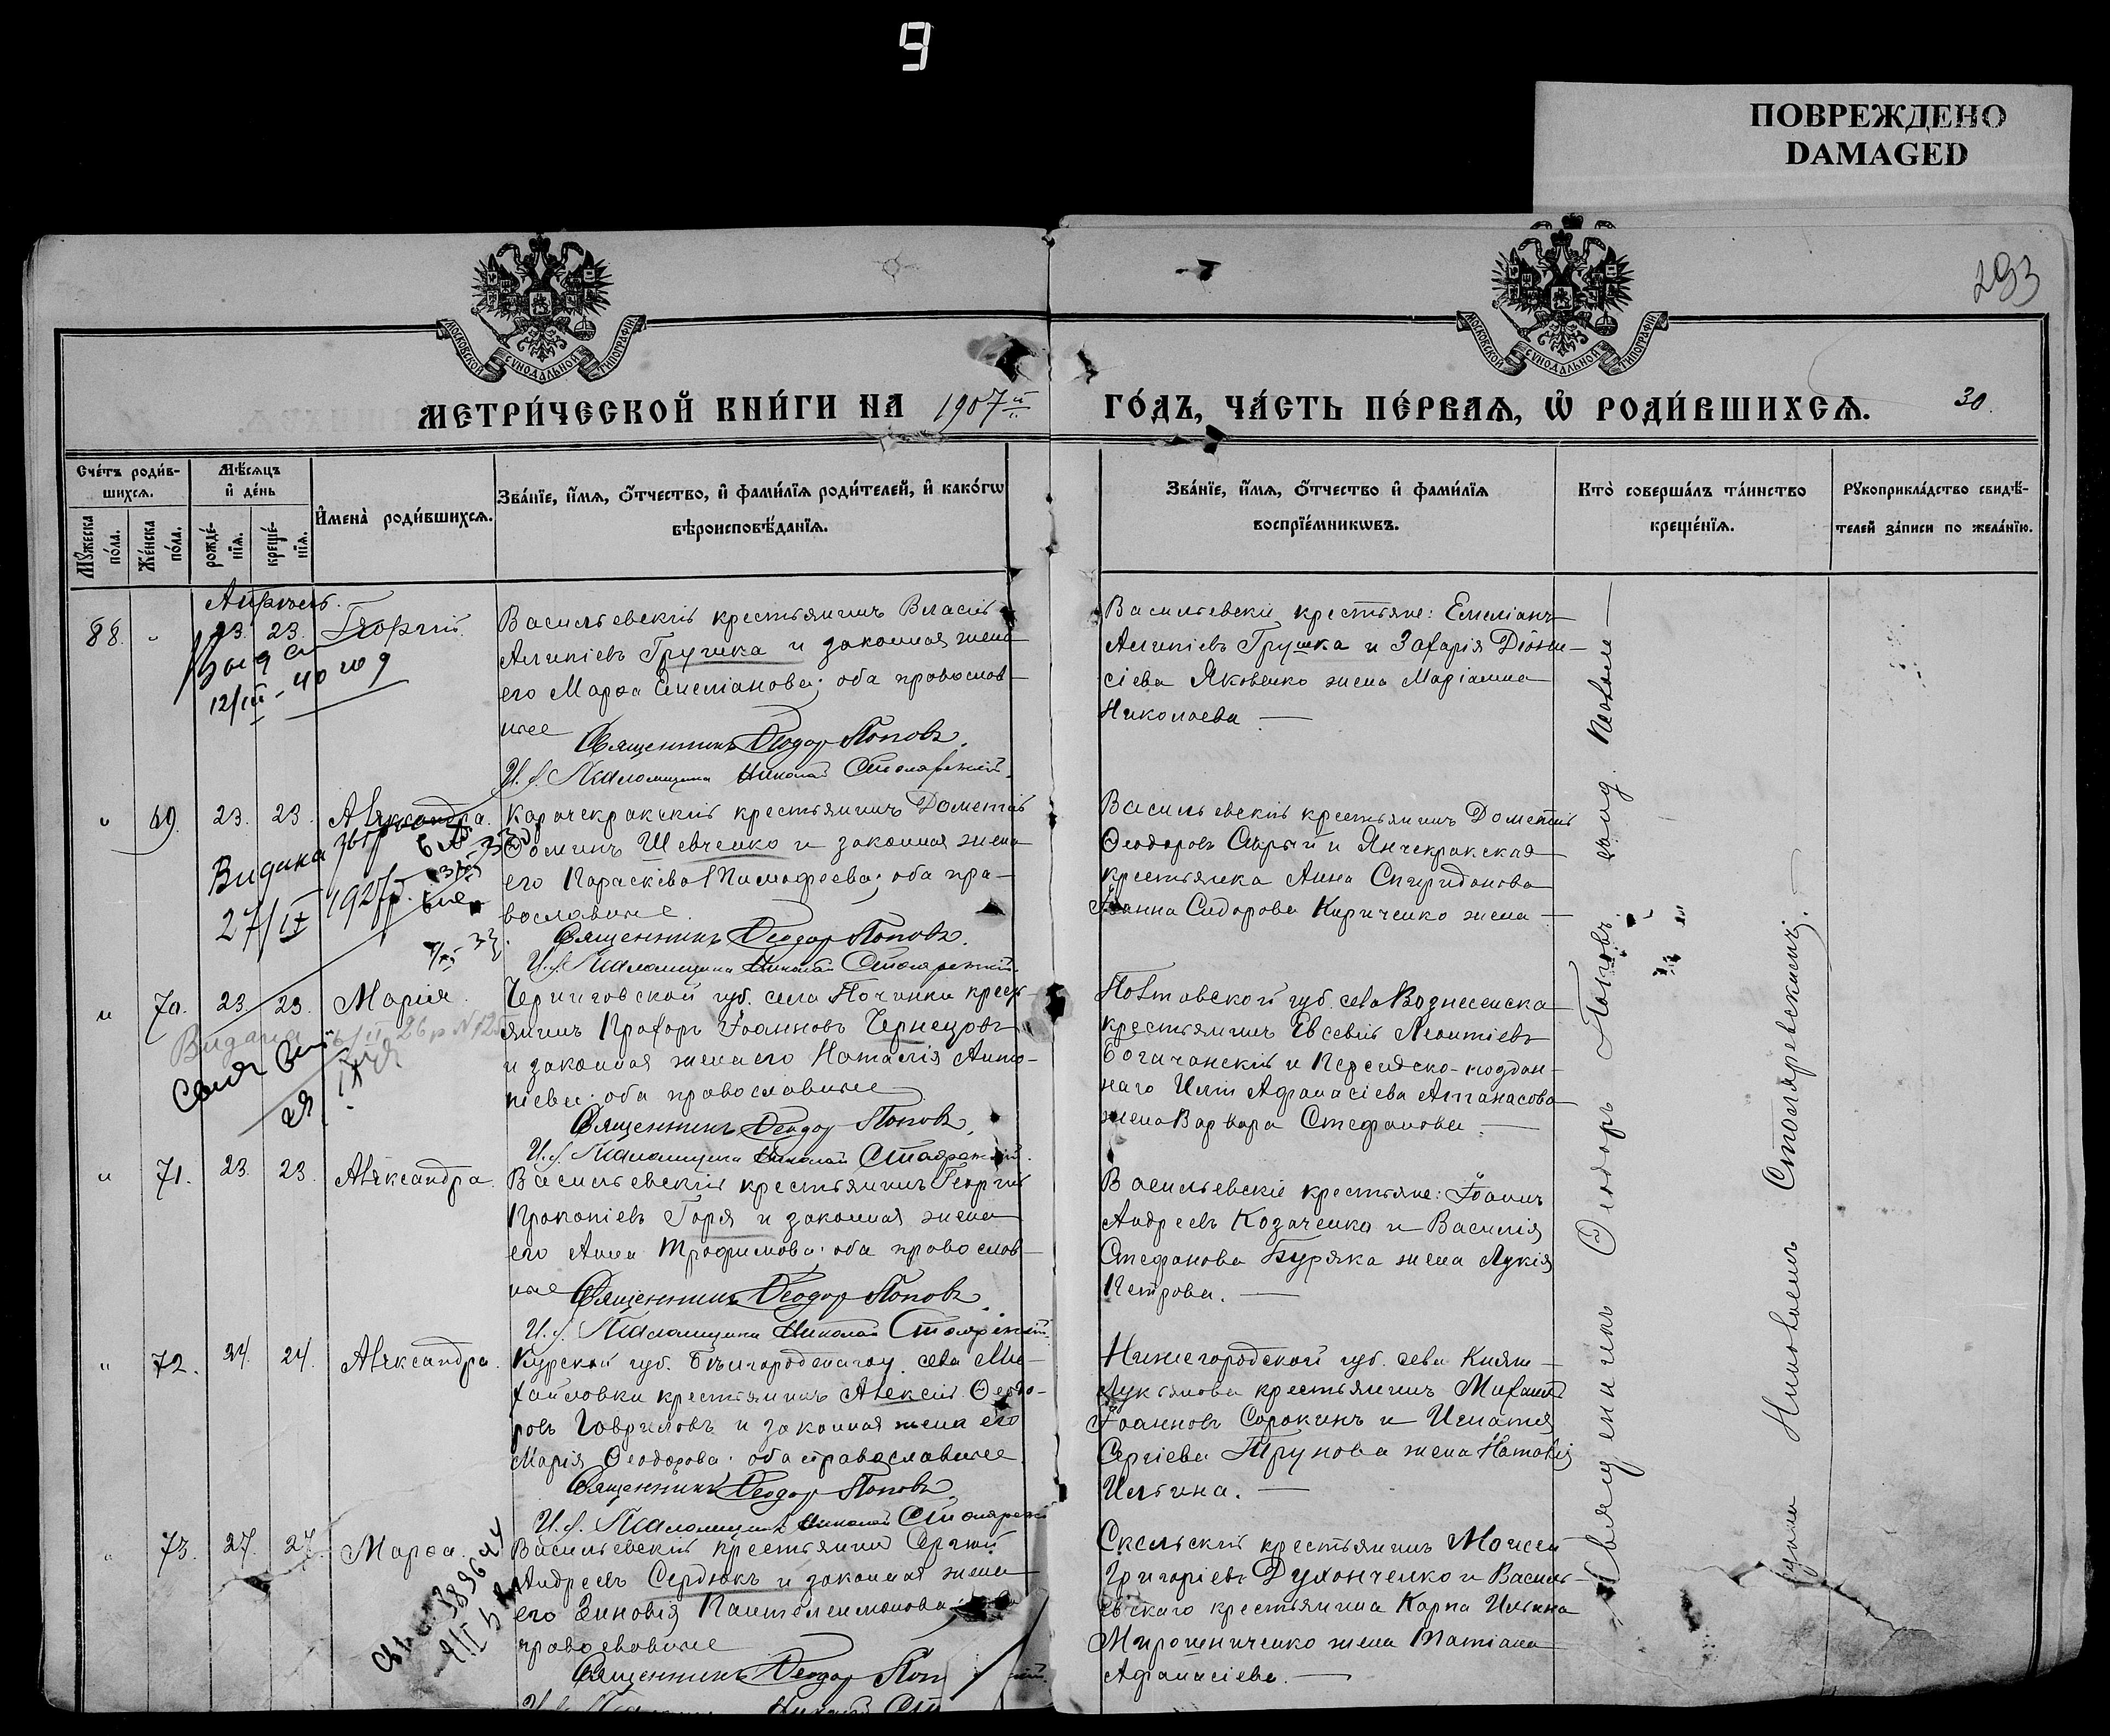 9
ПОВРЕЖДЕНО
DAMAGED
293
МОСКОВСКОЙ СѴНОДАЛЬНОЙ ТИПОГРАФІИ
МОСКОВСКОЙ СѴНОДАЛЬНОЙ ТИПОГРАФІИ
МЕТРИ́ЧЕСКОЙ КНИ́ГИ НА 1907й
ГО́ДЪ, ЧА́СТЬ ПЕ́РВАѦ, Ѡ҆ РОДИ́ВШИХСѦ.
30.
Сче́тъ роди́в-
шихсѧ.
Мꙋ́жеска по́ла.
Же́нска по́ла.
Мѣ́сѧцъ
и҆ де́нь
рожде́-
нїѧ.
креще́-
нїѧ.
И҆мена̀ роди́вшихсѧ.
Зва́нїе, и҆́мѧ, ѻ҆́тчество, и҆ фами́лїѧ роди́телей, и҆ како́гѡ
вѣроисповѣ́данїѧ.
Зва́нїе, и҆́мѧ, ѻ҆́тчество и҆ фами́лїѧ
воспрїе́мникѡвъ.
Кто̀ соверша́лъ та́инство
креще́нїѧ.
Рꙋкоприкла́дство свидѣ́-
телей за́писи по жела́нїю.
Апрѣль.
88. " 23. 23. Георгій.
12/III - 40 год
Васильевскій крестьянинъ Власій
Алипіевъ Грушка и законная жена
его Марѳа Емеліанова; оба православ-
ные
Священникъ Ѳеодор Поповъ.
И. д. Псаломщика Николай Столяревскій.
Васильевскіе крестьяне: Емеліанъ
Алипіевъ Грушка и Захарія Діони-
сіева Яковенко жена Маріанна
Николаева —
" 69. 23. 23. Александра.
Видана
27/IX 1927р.
Карачекракскій крестьянинъ Дометій
Ѳоминъ Шевченко и законная жена
его Параскева Тимофеева; оба пра-
вославные.
Священникъ Ѳеодор Поповъ.
И. д. Псаломщика Николай Столяревскій.
Васильевскій крестьянинъ Дометій
Ѳеодоровъ Сѣрый и Янчекракская
крестьянка Анна Спиридонова
Іоанна Сидорова Кириченко жена —
" 70. 23. 23. Марія.
Видана
Черниговской губ. села Починки кресть-
янинъ Прохоръ Іоанновъ Чернецовъ
и законная жена его Наталія Анто-
ніева; оба православные
Священникъ Ѳеодор Поповъ.
И. д. Псаломщика Николай Столяревскій.
Полтавской губ. села Вознесенска
крестьянинъ Евсевій Леонтіевъ
Богачанскій и Персидско-поддан-
наго Ильи Афанасіева Атанасова
жена Варвара Стефанова —
" 71. 23. 23. Александра.
Васильевскій крестьянинъ Георгій
Прокопіевъ Горя и законная жена
его Анна Трофимова; оба православ-
ные Священникъ Ѳеодор Поповъ.
И. д. Псаломщика Николай Столяревскій.
Васильевскіе крестьяне: Іоаннъ
Андреевъ Козаченко и Василія
Стефанова Буряка жена Лукія
Петрова. —
" 72. 24. 24. Александра.
Курской губ. Бѣлгородскаго у. села Ми-
хайловки крестьянинъ Алексій Ѳеодо-
ровъ Гавриловъ и законная жена его
Марія Ѳеодорова; оба православные.
Священникъ Ѳеодор Поповъ.
И. д. Псаломщика Николай Столяревскій
Нижегородской губ. села Княж-
Лукьянова крестьянинъ Михаилъ
Іоанновъ Сорокинъ и Игнатія
Сергіева Трунова жена Наталія
Ильина. —
" 73. 27. 27. Марѳа.
Васильевскій крестьянинъ Сергій
Андреевъ Сердюкъ и законная жена
его Зиновія Пантелеимонова;
православные
Священникъ Ѳеодор Поп
Скельскій крестьянинъ Моисей
Григоріевъ Духонченко и Василь-
евскаго крестьянина Карпа Ильина
Мирошниченко жена Татіана
Афанасіева. —
Священникъ Ѳеодоръ Поповъ
Николаемъ Столяревскимъ.